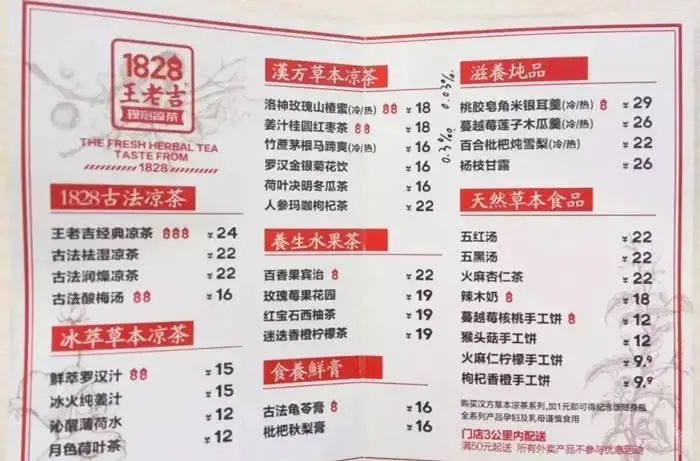 1828
王老吉
现泡凉茶
THE FRESH HERBAL TEA
TASTE FROM
1828
1828古法凉茶
王老吉经典凉茶 888 ¥ 24
古法祛湿凉茶 ¥ 22
古法润燥凉茶 ¥ 22
古法酸梅汤 88 ¥ 16
冰萃草本凉茶
鲜萃罗汉汁 88 ¥ 15
冰火纯姜汁 ¥ 15
沁醒薄荷水 ¥ 12
月色荷叶茶 ¥ 12
漢方草本凉茶
洛神玫瑰山楂蜜(冷/热) 88 ¥ 18
姜汁桂圆红枣茶 88 ¥ 18
竹蔗茅根马蹄爽(冷/热) ¥ 16
罗汉金银菊花饮 ¥ 16
荷叶决明冬瓜茶 ¥ 16
人参玛咖枸杞茶 ¥ 22
0.03%.
0.3‰
養生水果茶
百香果宾治 8 ¥ 22
玫瑰莓果花园 ¥ 19
红宝石西柚茶 ¥ 19
迷迭香橙柠檬茶 ¥ 19
食養鮮膏
古法龟苓膏 8 ¥ 16
枇杷秋梨膏 ¥ 16
滋養炖品
桃胶皂角米银耳羹(冷/热) 8 ¥ 29
蔓越莓莲子木瓜羹(冷/热) ¥ 26
百合枇杷炖雪梨(冷/热) ¥ 22
杨枝甘露 ¥ 26
天然草本食品
五红汤 ¥ 22
五黑汤 ¥ 22
火麻杏仁茶 ¥ 22
辣木奶 8 ¥ 18
蔓越莓核桃手工饼 8 ¥ 12
猴头菇手工饼 ¥ 12
火麻仁柠檬手工饼 ¥ 9.9
枸杞香橙手工饼 ¥ 9.9
购买汉方草本凉茶系列,加1元即可得纪念版随身瓶
全系列产品孕妇及乳母谨慎食用
门店3公里内配送
满50元起送 所有外卖产品不参与优惠活动